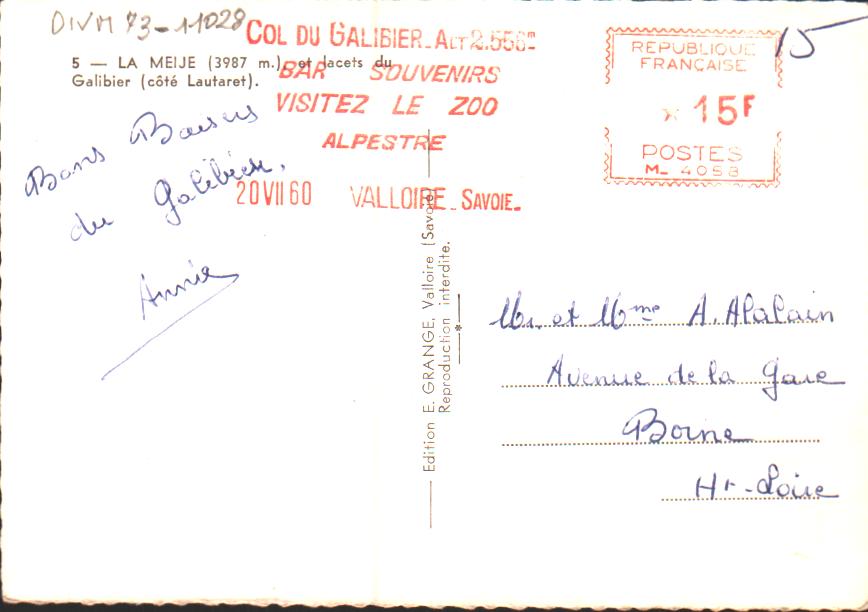 DIVM 73-11028
15
COL DU GALIBIER_ALT 2.556m
5 — LA MEIJE (3987 m.), et lacets du
Galibier (côté Lautaret).
BAR SOUVENIRS
VISITEZ LE ZOO
ALPESTRE
20 VII 60 VALLOIRE_SAVOIE_
REPUBLIQUE
FRANÇAISE
× 15F
POSTES
M_ 4058
Bons Baisers
du Galibier.
Annie
Edition E. GRANGE, Valloire (Savoie)
Reproduction interdite.
Mr. et Mme A.
Avenue de la Gare
Borne
Hte-Loire